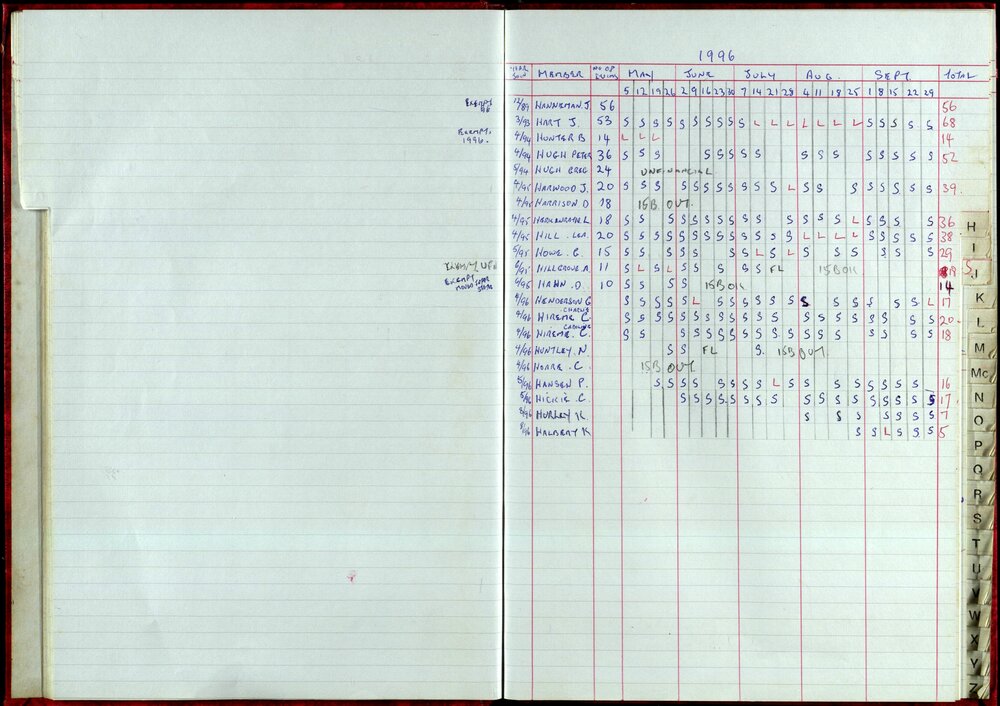 1996
MEMBER NO OF SWIMS MAY JUNE JULY AUG. SEPT. TOTAL
5 12 19 26 2 9 16 23 30 7 14 21 28 4 11 18 25 1 8 15 22 29
EXEMPT 96 12/89 HANNEMAN J. 56 56
3/93 HART J. 53 S S S S S S S S S S L L L L L L L S S S S S 68
EXEMPT. 1996. 4/94 HUNTER B 14 L L L 14
4/94 HUGH PETER 36 S S S S S S S S S S S S S S S S 52
5/94 HUGH GREG 24 UNFINANCIAL
4/95 HARWOOD J. 20 S S S S S S S S S S S L S S S S S S S S 39.
4/95 HARRISON D 18 15B OUT.
4/95 L 18 S S S S S S S S S S S S S L S S S S 36
4/95 HILL 20 S S S S S S S S S S S S S L L L L S S S S S 38
5/95 HOWE. G. 15 S S S S S S S L S L S S S S S 29
11 S L S L S S S S S FL 15B OK 19
EXEMPT 6/95 HAHN. D. 10 S S S S 15B OK 14
4/96 HENDERSON G S S S S S L S S S S S S S S S S S S L 17
4/96 HIREME C. S S S S S S S S S S S S S S S S S S S S 20
4/96 HIREME. C. CAROLINE S S S S S S S S S S S S S S S S S S 18
4/96 HUNTLEY. N. S S FL S. 15B OUT.
4/96 HOARE. C. 15B OUT
5/96 HANSEN P. S S S S S S S S L S S S S S S S S 16
5/96 HICKIE. C. S S S S S S S S S S S S S S S S S 17
8/96 HURLEY K. S S S S S S 7
8/96 HALBERT K S S L S S S 5
H
I
J
K
L
M
Mc
N
O
P
Q
R
S
T
U
V
W
X
Y
Z